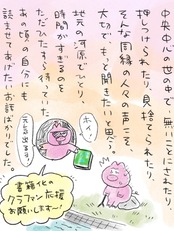 中央中心の世の中で、無いことにされたり、
押しつけられたり、見捨てられたり。
そんな周縁の人々の声こそ、
大切で、もっと聞きたいと思う。
地元の河原でひとり、
時間がすぎるのを
ただひたすら待っていた
あの頃の自分にも
読ませてあげたいお話ばかりでした。
ホイ！
書籍化の
クラファン応援
お願いします〜